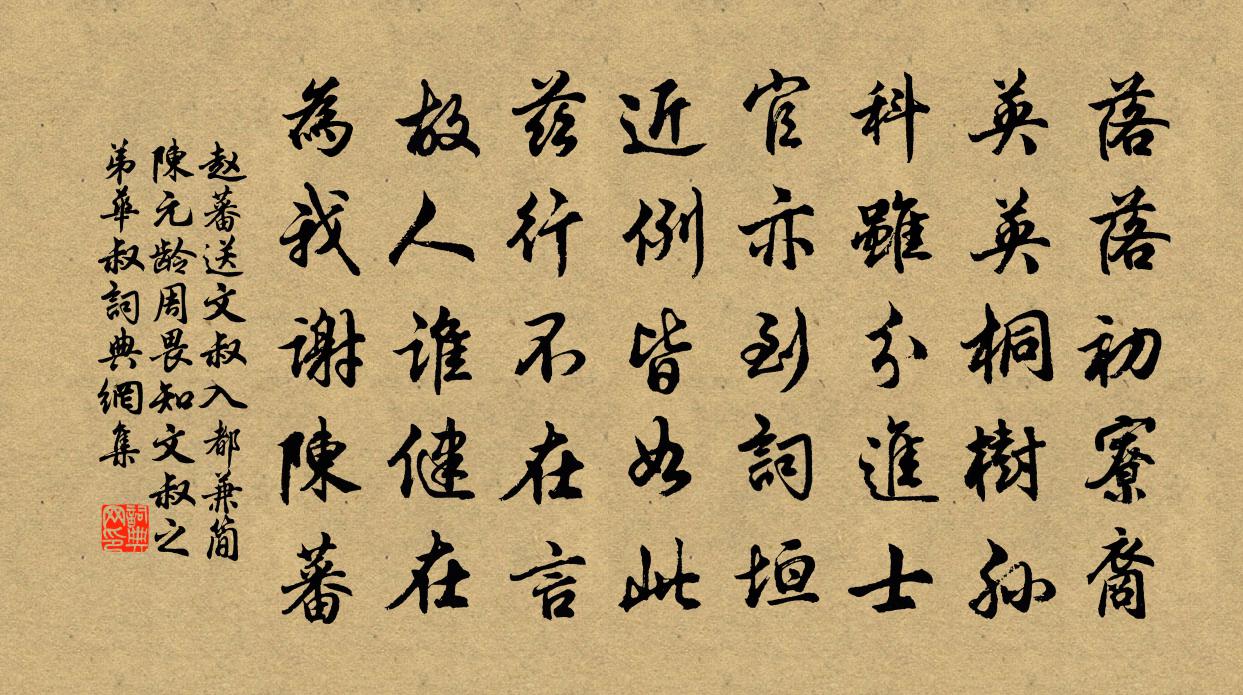 落落初寮裔
英英桐樹孫
科雖分進士
官亦到詞垣
近例皆如此
茲行不在言
故人誰健在
為我謝陳蕃
赵蕃送文叔入都兼简
陳元龄周畏知文叔之
弟華叔詞典網集
詞典网印